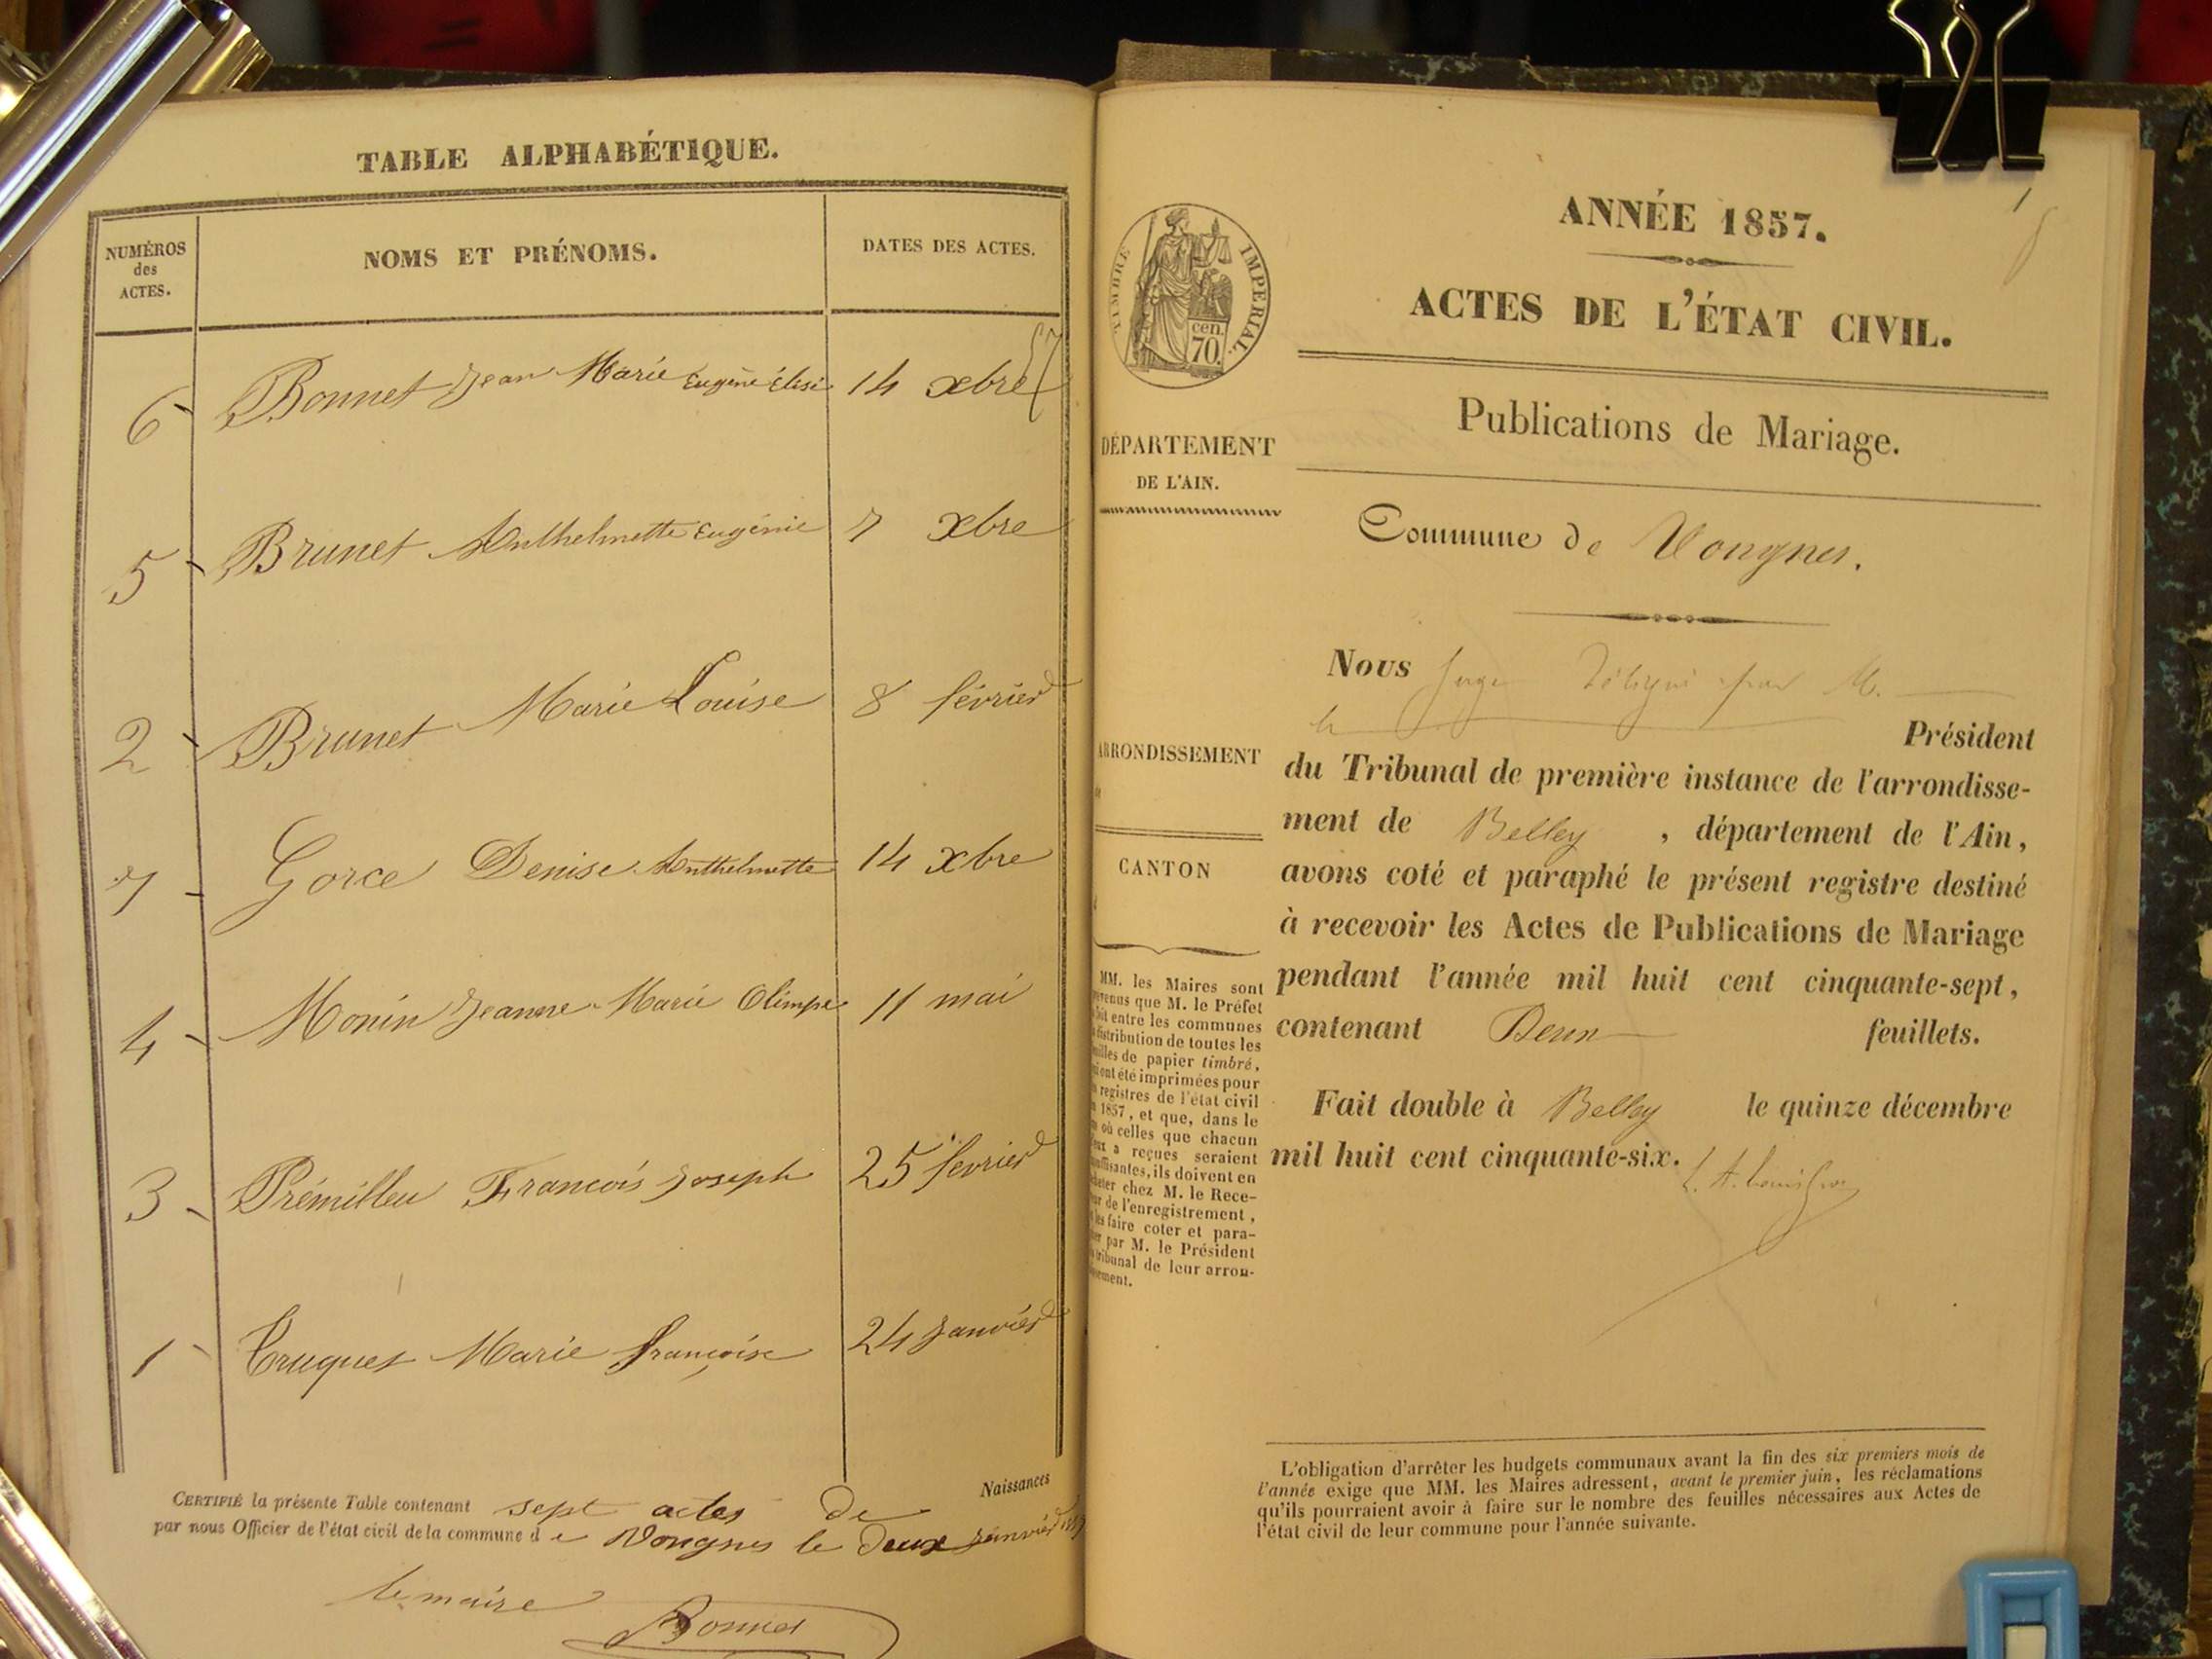 TABLE ALPHABÉTIQUE.
NUMÉROS
des
ACTES.
NOMS ET PRÉNOMS.
DATES DES ACTES.
6 Bonnet Jean Marie Eugène Élisé 14 xbre
5 Brunet Anthelmette Eugénie 7 xbre
2 Brunet Marie Louise 8 février
7 Gorce Denise Anthelmette 14 xbre
4 Monin Jeanne Marie Olimpe 11 mai
3 Prémilleu François Joseph 25 fevrier
1 Truquet Marie françoise 24 Janvier
Naissances
CERTIFIÉ la présente Table contenant sept actes de
par nous Officier de l'état civil de la commune d e Vongnes le deux Janvier
le maire
Bonnet
ANNÉE 1857.
1
ACTES DE L'ÉTAT CIVIL.
TIMBRE IMPERIAL.
cen.
70.
Publications de Mariage.
DÉPARTEMENT
DE L'AIN.
Commune de Vongnes.
Nous Juge Délégué par M.
le Président
du Tribunal de première instance de l'arrondisse-
ment de Belley , département de l'Ain,
avons coté et paraphé le présent registre destiné
à recevoir les Actes de Publications de Mariage
pendant l'année mil huit cent cinquante-sept,
contenant Deux feuillets.
Fait double à Belley le quinze décembre
mil huit cent cinquante-six.
ARRONDISSEMENT
CANTON
MM. les Maires sont
que M. le Préfet
entre les communes
distribution de toutes les
de papier timbré,
ont été imprimées pour
registres de l'état civil
1857, et que, dans le
où celles que chacun
a reçues seraient
ils doivent en
chez M. le Rece-
de l'enregistrement,
les faire coter et para-
par M. le Président
tribunal de leur arron-
L'obligation d'arrêter les budgets communaux avant la fin des six premiers mois de
l'année exige que MM. les Maires adressent, avant le premier juin, les réclamations
qu'ils pourraient avoir à faire sur le nombre des feuilles nécessaires aux Actes de
l'état civil de leur commune pour l'année suivante.